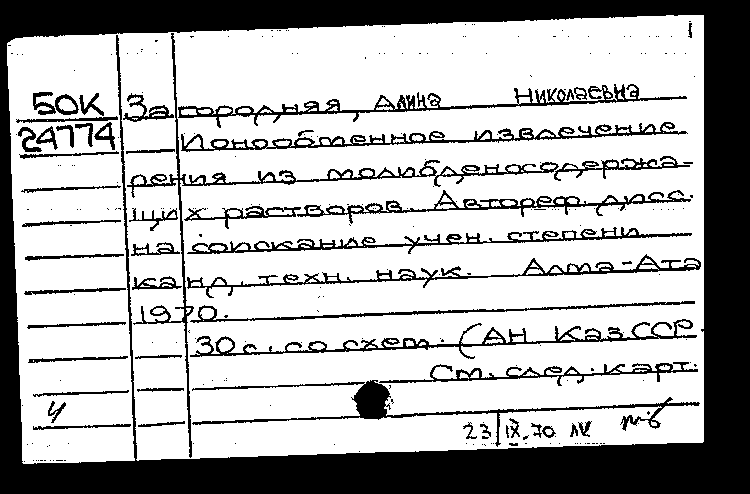 1
50К Загородняя, Алина Николаевна
24774 Ионообменное извлечение
рения из молибденосодержа-
щих растворов. Автореф. дисс.
на соискание учен. степени
канд. техн. наук. Алма-Ата
1970.
30 с. со схем. (АН КазССР.
См. след. карт.
4
23/IX.70